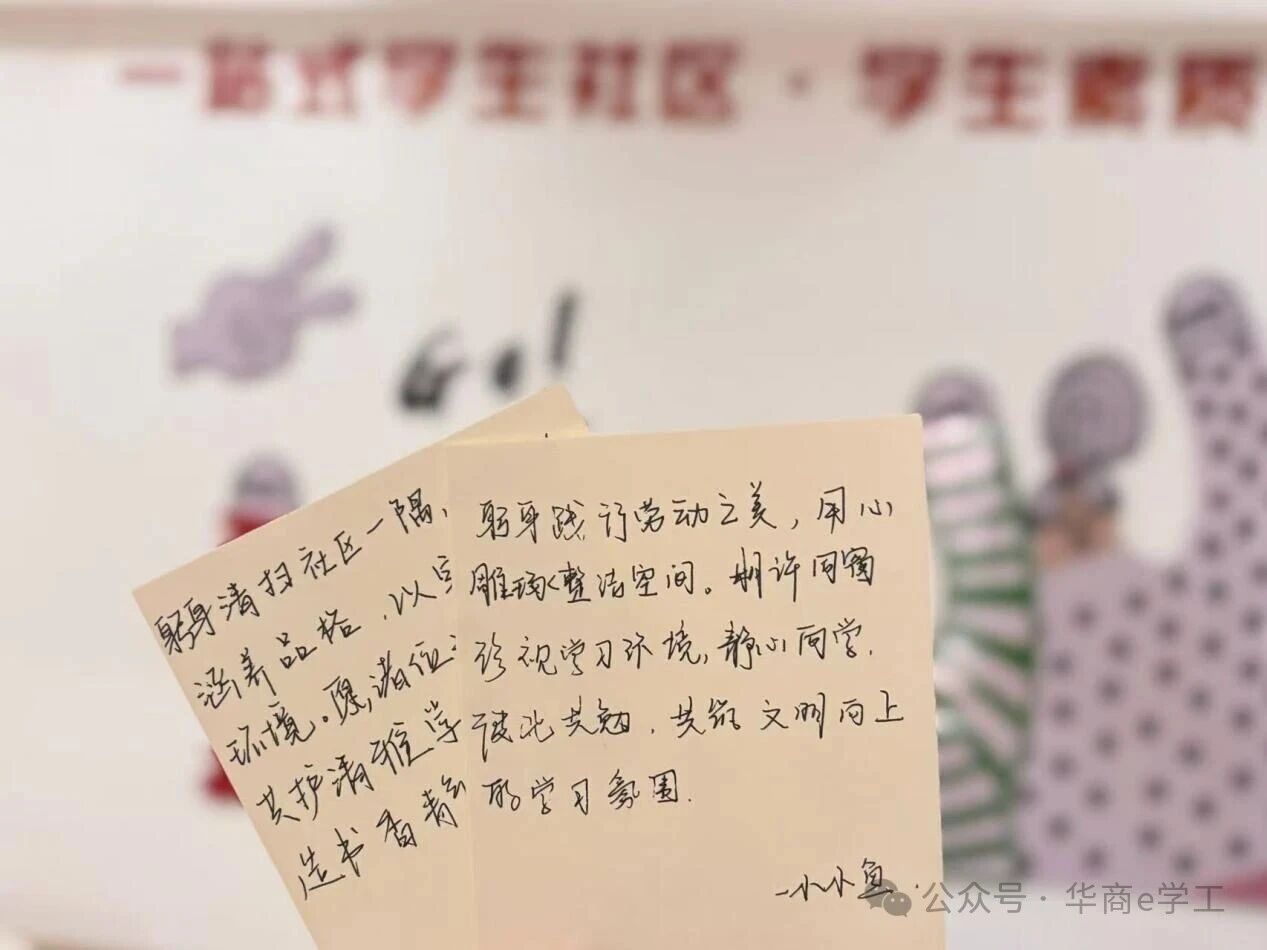 一站式学生社区·学生素质
Go!
躬身清扫社区一隅,
涵养品格,以
环境。愿诸位
共护清雅学
造书香静
躬身践行劳动之美,用心
雕琢整洁空间。期许同窗
珍视学习环境,静心向学.
彼此共勉,共筑文明向上
的学习氛围.
—小小鱼
公众号·华商e学工